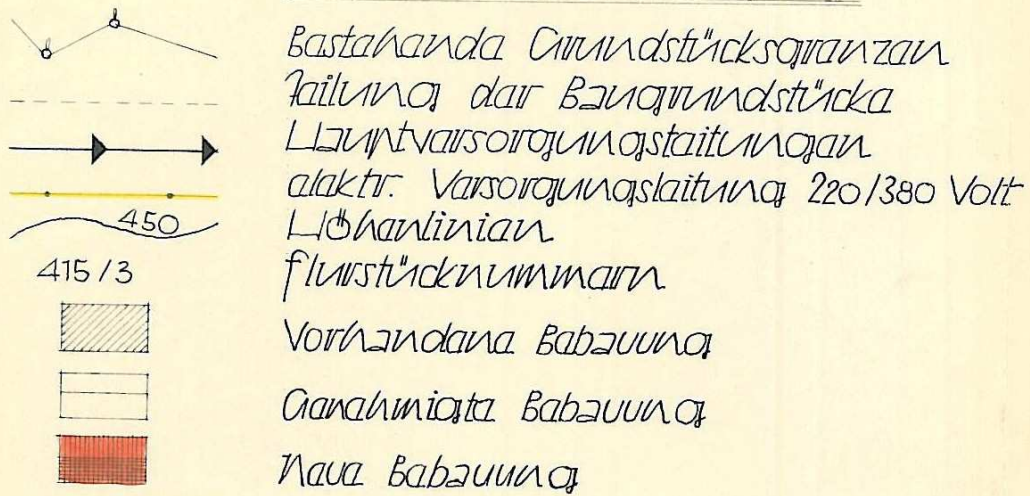 Bestehende Grundstücksgrenzen
Teilung der Baugrundstücke
Hauptversorgungsleitungen
elektr. Versorgungsleitung 220/380 Volt
450
Höhenlinien
415/3
Flurstücknummern
Vorhandene Bebauung
Genehmigte Bebauung
Neue Bebauung